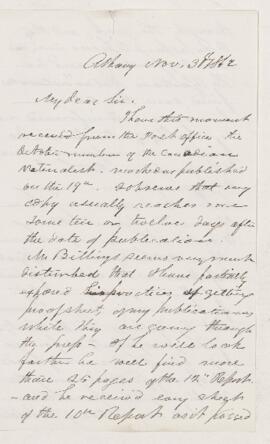 Albany Nov. 3d 1862
My dear Sir.
I have this moment
received from the Post office the
October number of the Canadian
Naturalist. marked as published
on the 19th. I observe that my
copy usually reaches me
some ten or twelve days after
the date of publication.
Mr Billings seems very much
disturbed that I have partially
exposed his practice of getting
proof sheets of my publications
while they are going through
the press - if he will look
farther he will find more
than 25 pages of the Report
- and he received every sheet
of the 10th Report as it passed